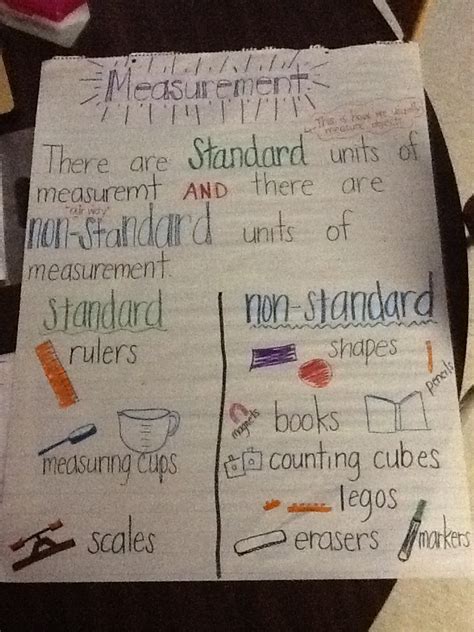 Measurement
This is how we usually
measure objects!
There are Standard units of
measuremt AND there are
"our way"
non-standard units of
measurement.
Standard
rulers
measuring cups
scales
non-standard
shapes
pencils
magnets
books
counting cubes
legos
erasers
markers